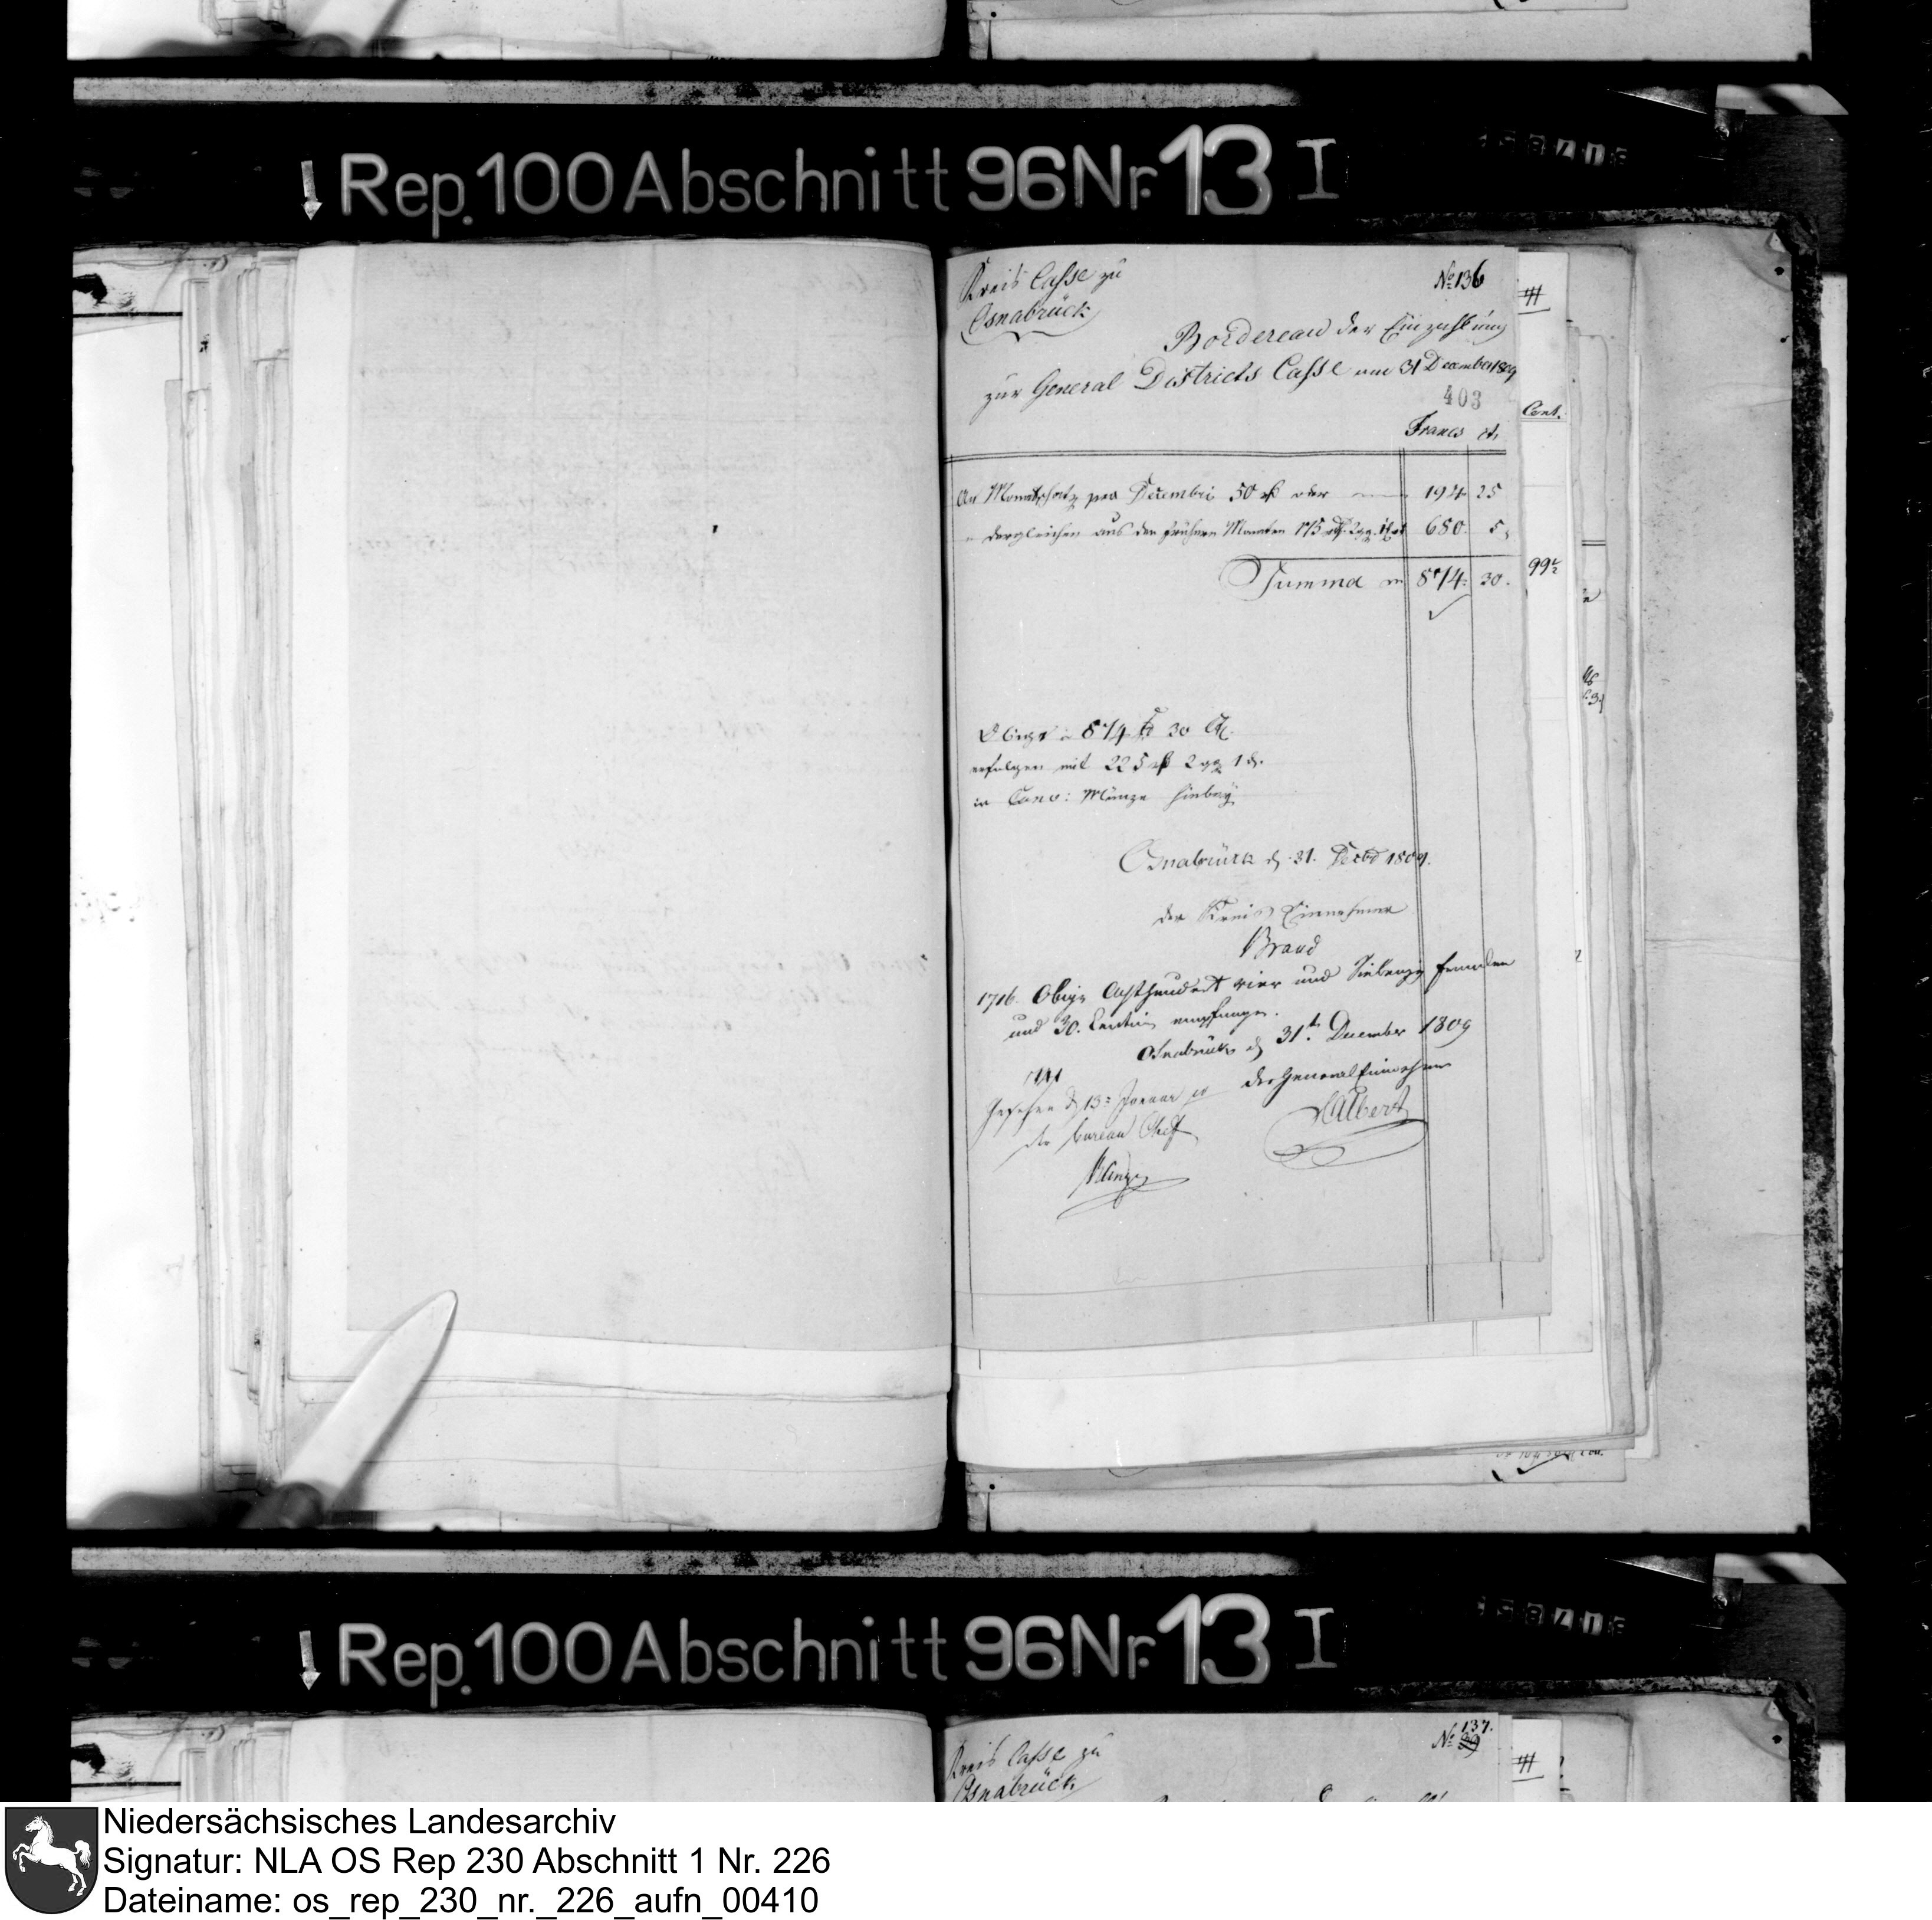 Rep. 100 Abschnitt 96 Nr. 13 I
Kreis Casse zu
Osnabrück
No 136
Bordereau der Einzahlung
zur General Districts Casse am 31 December 1809
403
Francs ct.
An Monatschatz pro Decembri 50 rt oder 194 25
" dergleichen aus den frühern Monaten 175 rt. 2 gg. 680. 5.
Summa 874. 30.
Cont.
99
Obige 874 30
erfolgen mit 225 rt 2 gg 1 d.
in Conv: Münze hiebey
Osnabrück d. 31. Decbr 1809.
der Kreis Einnehmer
Brand
1716. Obige Achthundert vier und Siebenzig Franken
und 30. Centim empfangen.
Osnabrück d 31t. December 1809
der General Einnehmer
Gesehen d 13t Januar
der bureau Chef
Rep. 100 Abschnitt 96 Nr. 13 I
Kreis Casse zu
Osnabrück
No 137.
Niedersächsisches Landesarchiv
Signatur: NLA OS Rep 230 Abschnitt 1 Nr. 226
Dateiname: os_rep_230_nr._226_aufn_00410